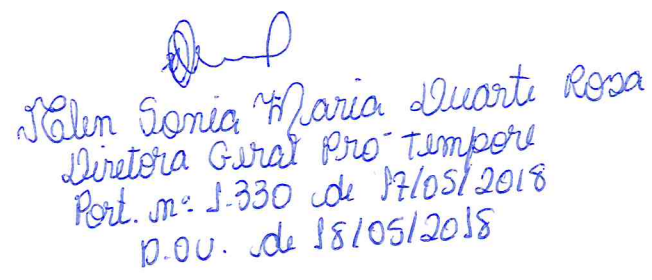 Helen Sonia Maria Duarte Rosa
Diretora Geral Pró-Tempore
Port. nº 1.330 de 17/05/2018
D.O.U. de 18/05/2018